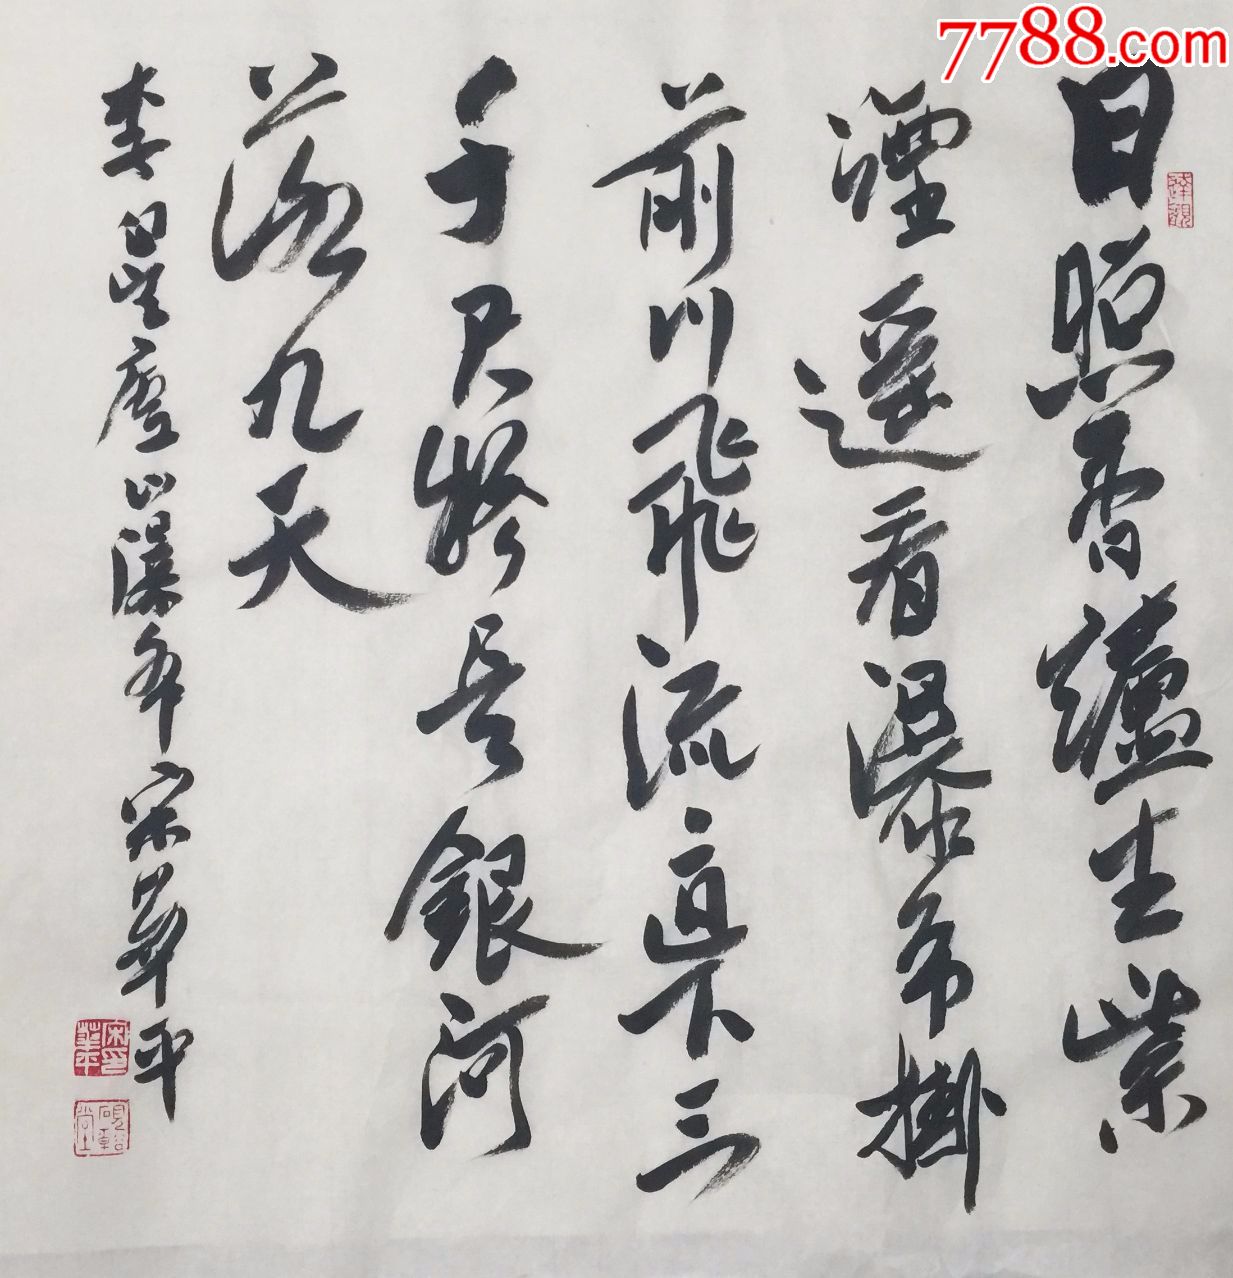 日照香爐生紫
煙遥看瀑布掛
前川飛流直下三
千尺疑是銀河
落九天
李白望廬山瀑布 宋華平
7788.com